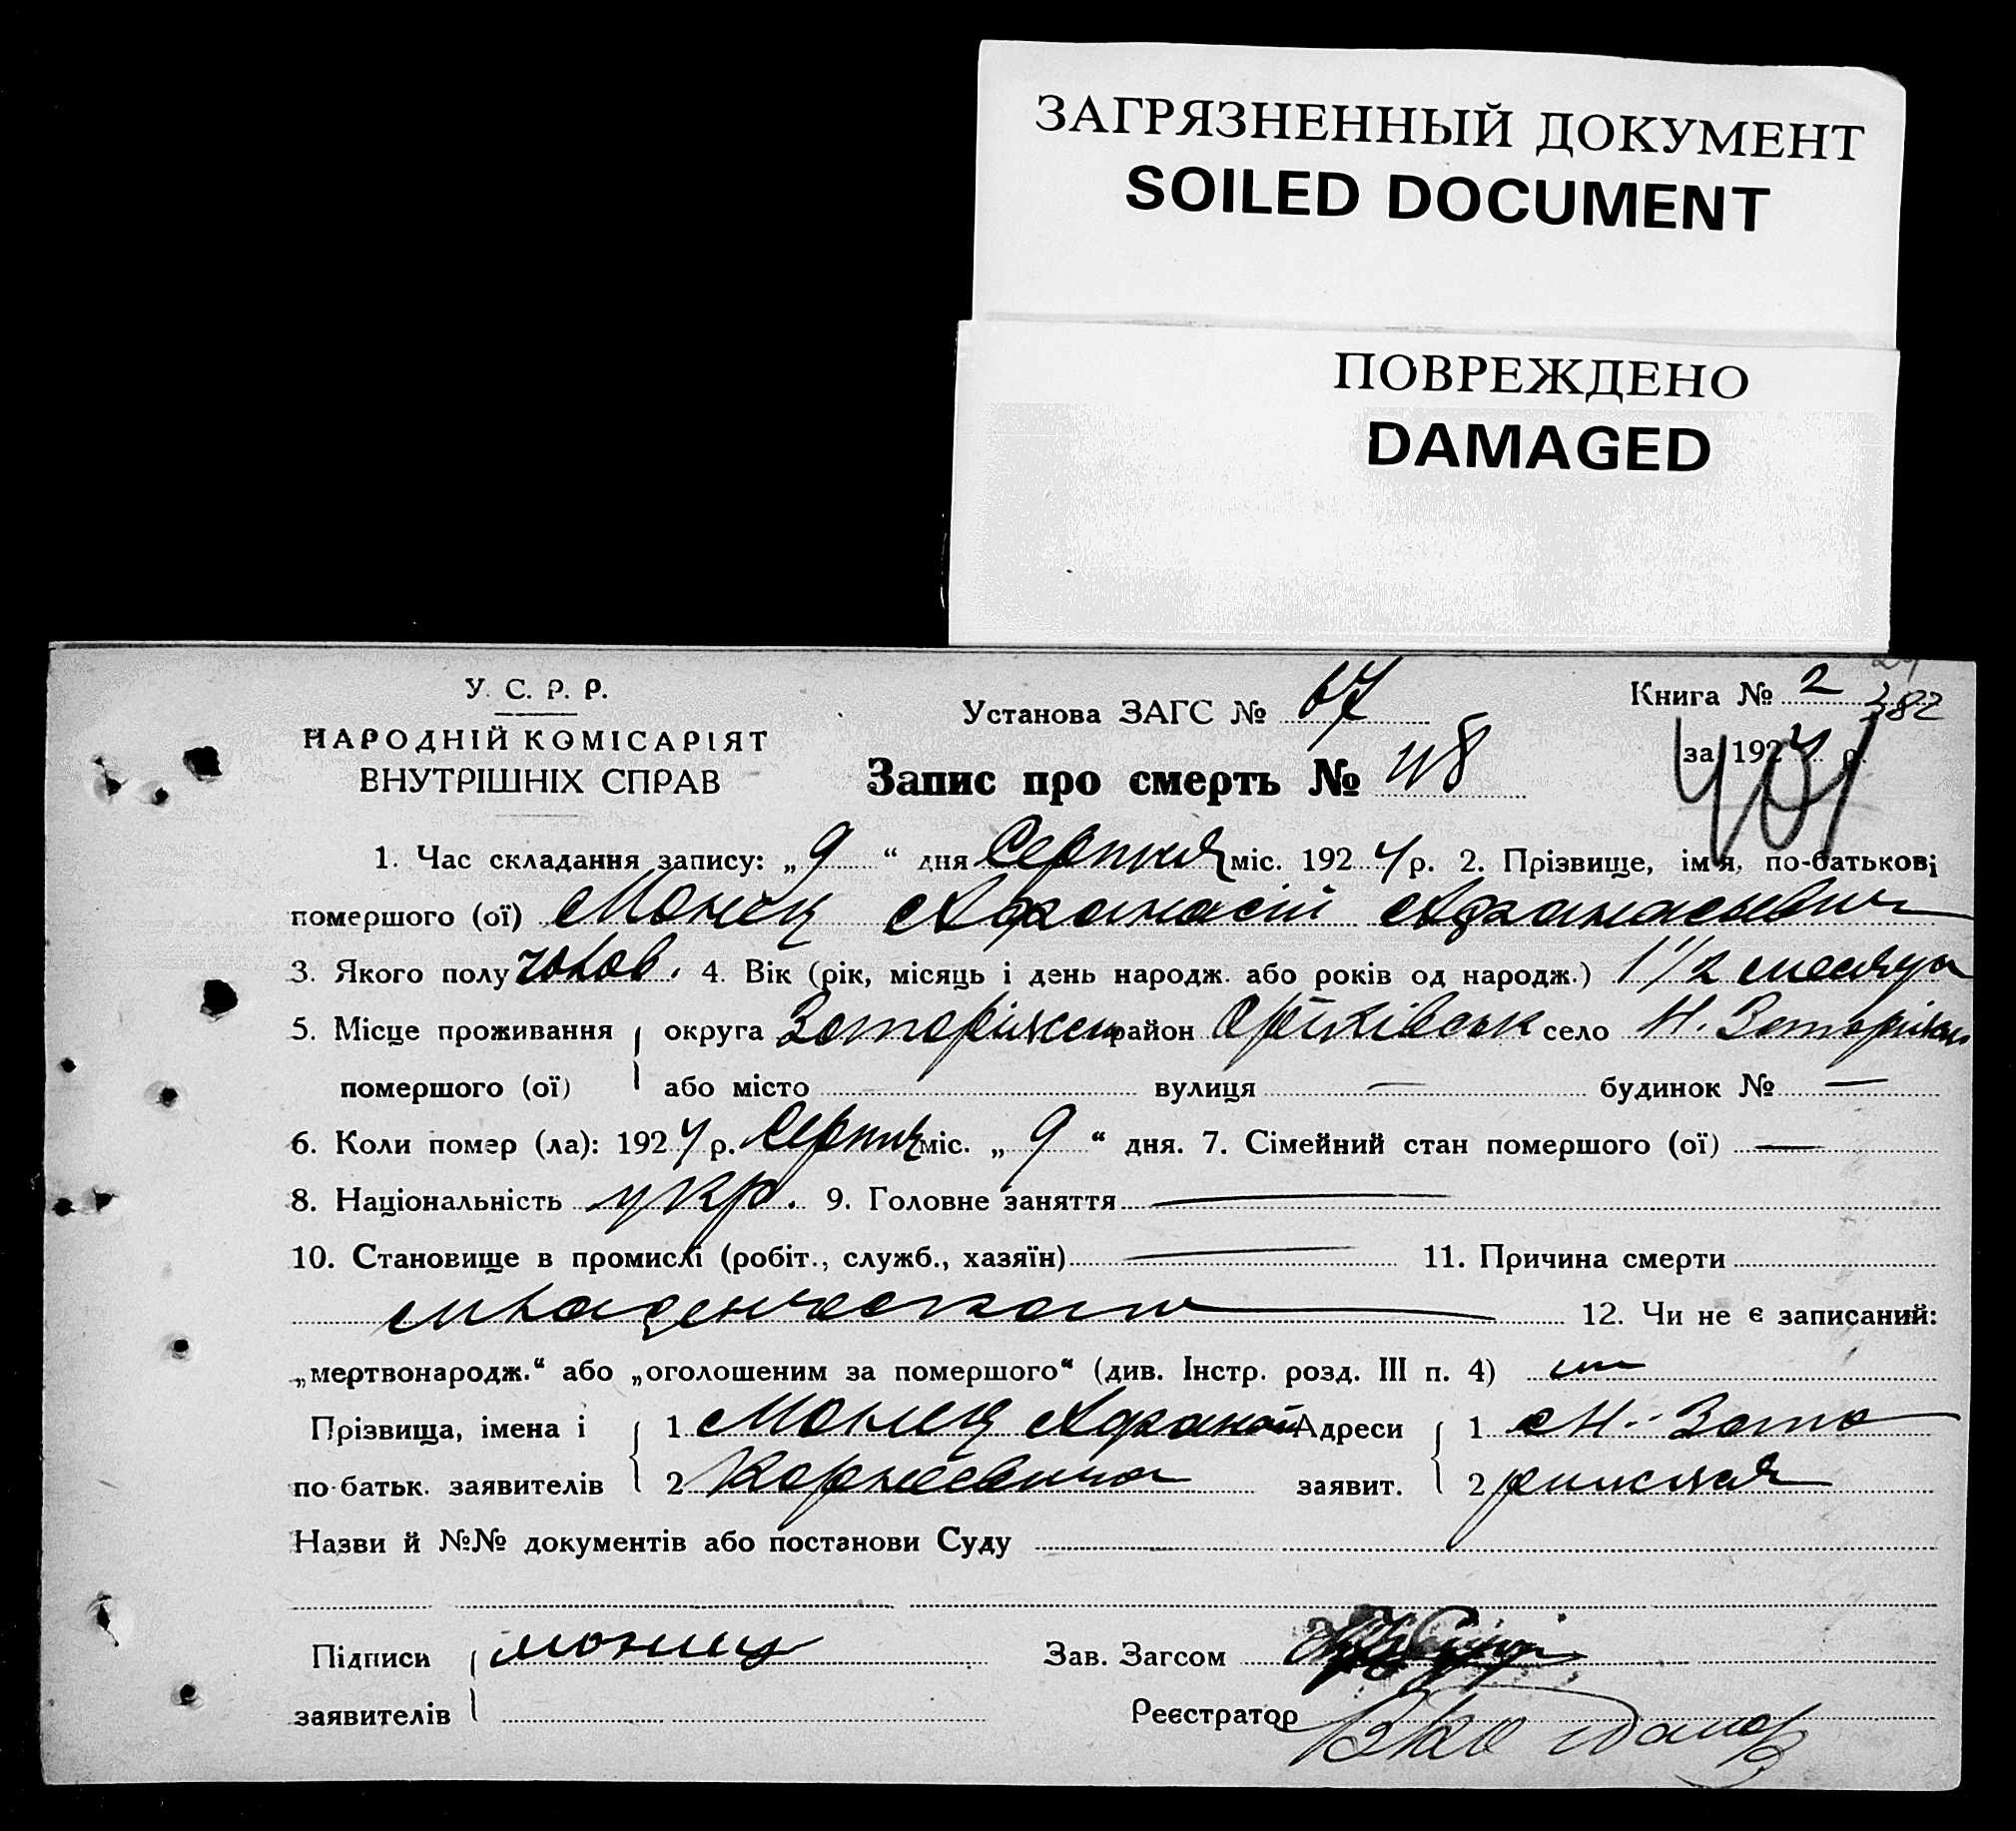 ЗАГРЯЗНЕННЫЙ ДОКУМЕНТ
SOILED DOCUMENT
ПОВРЕЖДЕНО
DAMAGED
У. С. Р. Р.
НАРОДНІЙ КОМІСАРІЯТ
ВНУТРІШНІХ СПРАВ
Установа ЗАГС № 67
Запис про смерть № 48
Книга № 2
382
за 1924 р.
401
1. Час складання запису: „9“ дня Серпня міс. 1924 р. 2. Прізвище, ім'я, по-батькові
помершого (ої) Монец Афанасій Афанасьевич
3. Якого полу чолов. 4. Вік (рік, місяць і день народж. або років од народж.) 1 1/2 месяца
5. Місце проживання округа район село Н.
помершого (ої) або місто вулиця — будинок № —
6. Коли помер (ла): 1924 р. Серпня міс. „9“ дня. 7. Сімейний стан помершого (ої) —
8. Національність укр. 9. Головне заняття —
10. Становище в промислі (робіт., служб., хазяїн) — 11. Причина смерти
младенческая 12. Чи не є записаний:
„мертвонародж.“ або „оголошеним за помершого“ (див. Інстр. розд. III п. 4)
Прізвища, імена і 1 Монец Адреси 1
по-батьк. заявителів 2 Корнеевича заявит. 2
Назви й №№ документів або постанови Суду
Підписи монец Зав. Загсом
заявителів Реєстратор